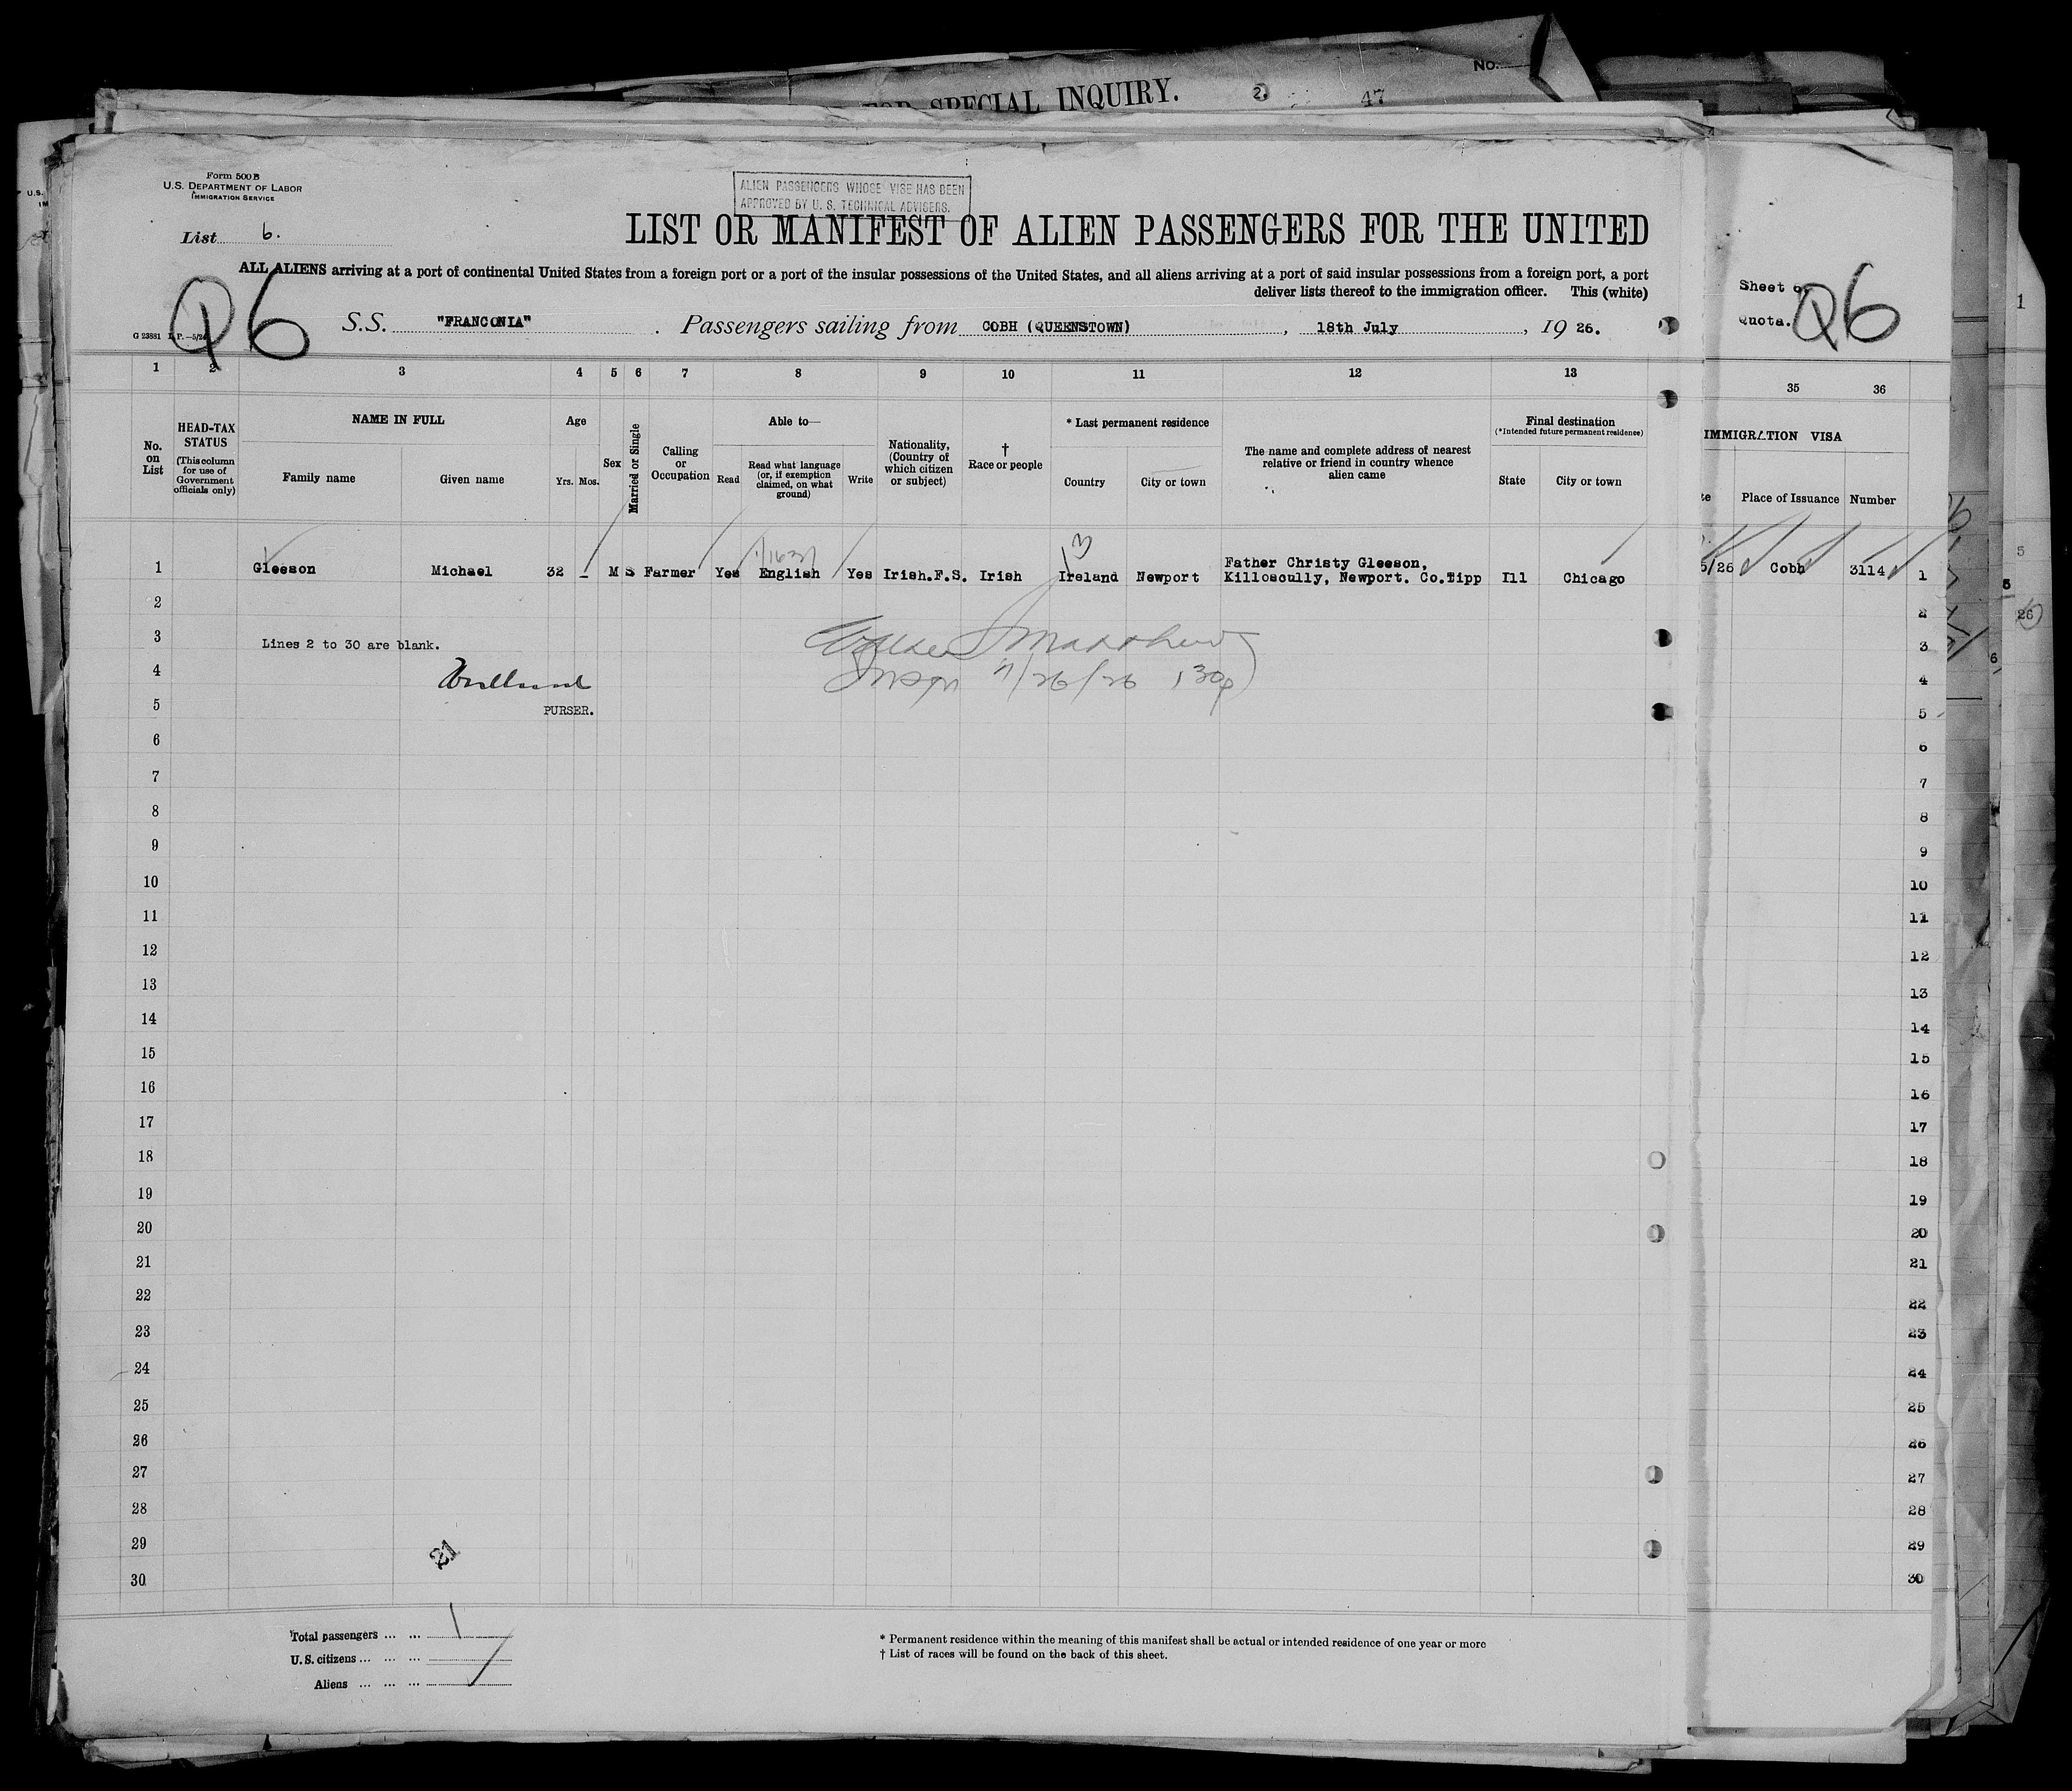 FOR SPECIAL INQUIRY.
2.
47
No.
Form 500B
U.S. DEPARTMENT OF LABOR
IMMIGRATION SERVICE
ALIEN PASSENGERS WHOSE VISE HAS BEEN
APPROVED BY U. S. TECHNICAL ADVISERS.
List 6.
LIST OR MANIFEST OF ALIEN PASSENGERS FOR THE UNITED
ALL ALIENS arriving at a port of continental United States from a foreign port or a port of the insular possessions of the United States, and all aliens arriving at a port of said insular possessions from a foreign port, a port
deliver lists thereof to the immigration officer. This (white)
Q6
S.S. "FRANCONIA" . Passengers sailing from COBH (QUEENSTOWN) , 18th July , 19 26.
G 23881
Sheet
Quota.
Q6
1 2 3 4 5 6 7 8 9 10 11 12 13 35 36
No. on List
HEAD-TAX STATUS
(This column for use of Government officials only)
NAME IN FULL
Family name
Given name
Age
Yrs. Mos.
Sex
Married or Single
Calling or Occupation
Able to—
Read
Read what language (or, if exemption claimed, on what ground)
Write
Nationality, (Country of which citizen or subject)
†
Race or people
* Last permanent residence
Country
City or town
The name and complete address of nearest relative or friend in country whence alien came
Final destination
(*Intended future permanent residence)
State
City or town
IMMIGRATION VISA
Place of Issuance
Number
1 Gleeson Michael 32 – M S Farmer Yes English Yes Irish.F.S. Irish Ireland Newport Father Christy Gleeson,
Killoscully, Newport. Co.Tipp Ill Chicago
5/26 Cobh 3114 1
2 2
3 Lines 2 to 30 are blank. 3
4 4
7/26/26
5 PURSER. 5
6 6
7 7
8 8
9 9
10 10
11 11
12 12
13 13
14 14
15 15
16 16
17 17
18 18
19 19
20 20
21 21
22 22
23 23
24 24
25 25
26 26
27 27
28 28
29 29
30 30
21
Total passengers ... ... 1
U.S. citizens ... ... ...
Aliens ... ... ... 1
* Permanent residence within the meaning of this manifest shall be actual or intended residence of one year or more
† List of races will be found on the back of this sheet.